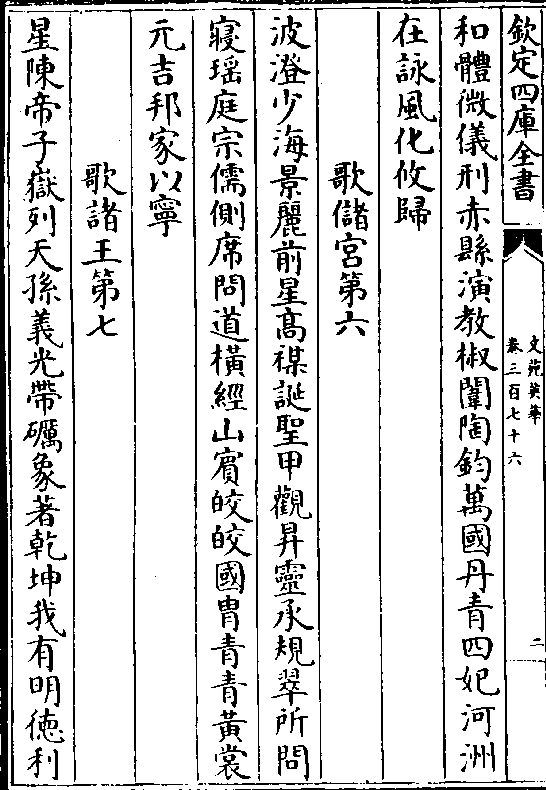 欽定四庫全書
文苑英華
卷三百七十六
二
和體微儀刑赤縣演教椒闈陶鈞萬國丹青四妃河洲
在詠風化攸歸
歌儲宮第六
波澄少海景麗前星髙禖誕聖甲觀昇靈承規翠所問
寢瑶庭宗儒側席問道橫經山賓皎皎國胄青青黃裳
元吉邦家以寧
歌諸王第七
星陳帝子嶽列天孫義光帶礪象著乾坤我有明德利